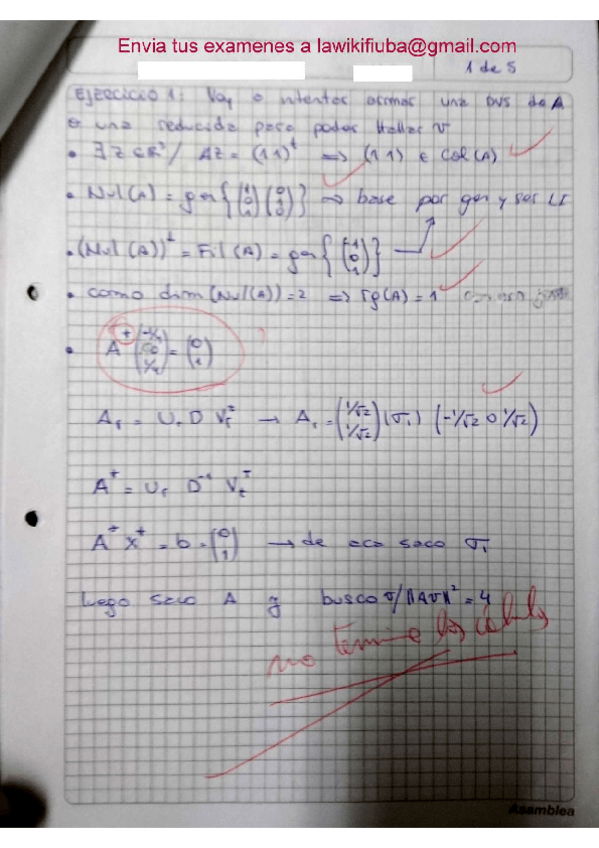 Envia tus examenes a lawikifiuba@gmail.com
1 de 5
EJERCICIO 1: Voy a intentar armar una DVS de A
o una reducida para poder Hallar v
• ∃ Z ∈ ℝ³ / AZ = (1 1)ᵗ ⇒ (1 1) ∈ Col(A)
• Nul(A) = gen {(1 0 1) (0 1 0)} → base por gen y ser LI
• (Nul(A))⊥ = Fil(A) = gen {(-1 0 1)}
• como dim(Nul(A)) = 2 ⇒ rg(A) = 1
• A⁺ (-1/4 0 1/4) = (0 1)
Aᵣ = Uᵣ D Vᵣᵀ → Aᵣ = (1/√2 1/√2) (σ₁) (-1/√2 0 1/√2)
A⁺ = Uᵣ D⁻¹ Vᵣᵀ
A⁺ X⁺ = b = (0 1) → de aca saco σ₁
Luego saco A y busco v / ‖Av‖² = 4
no termine los cálculos
Asamblea